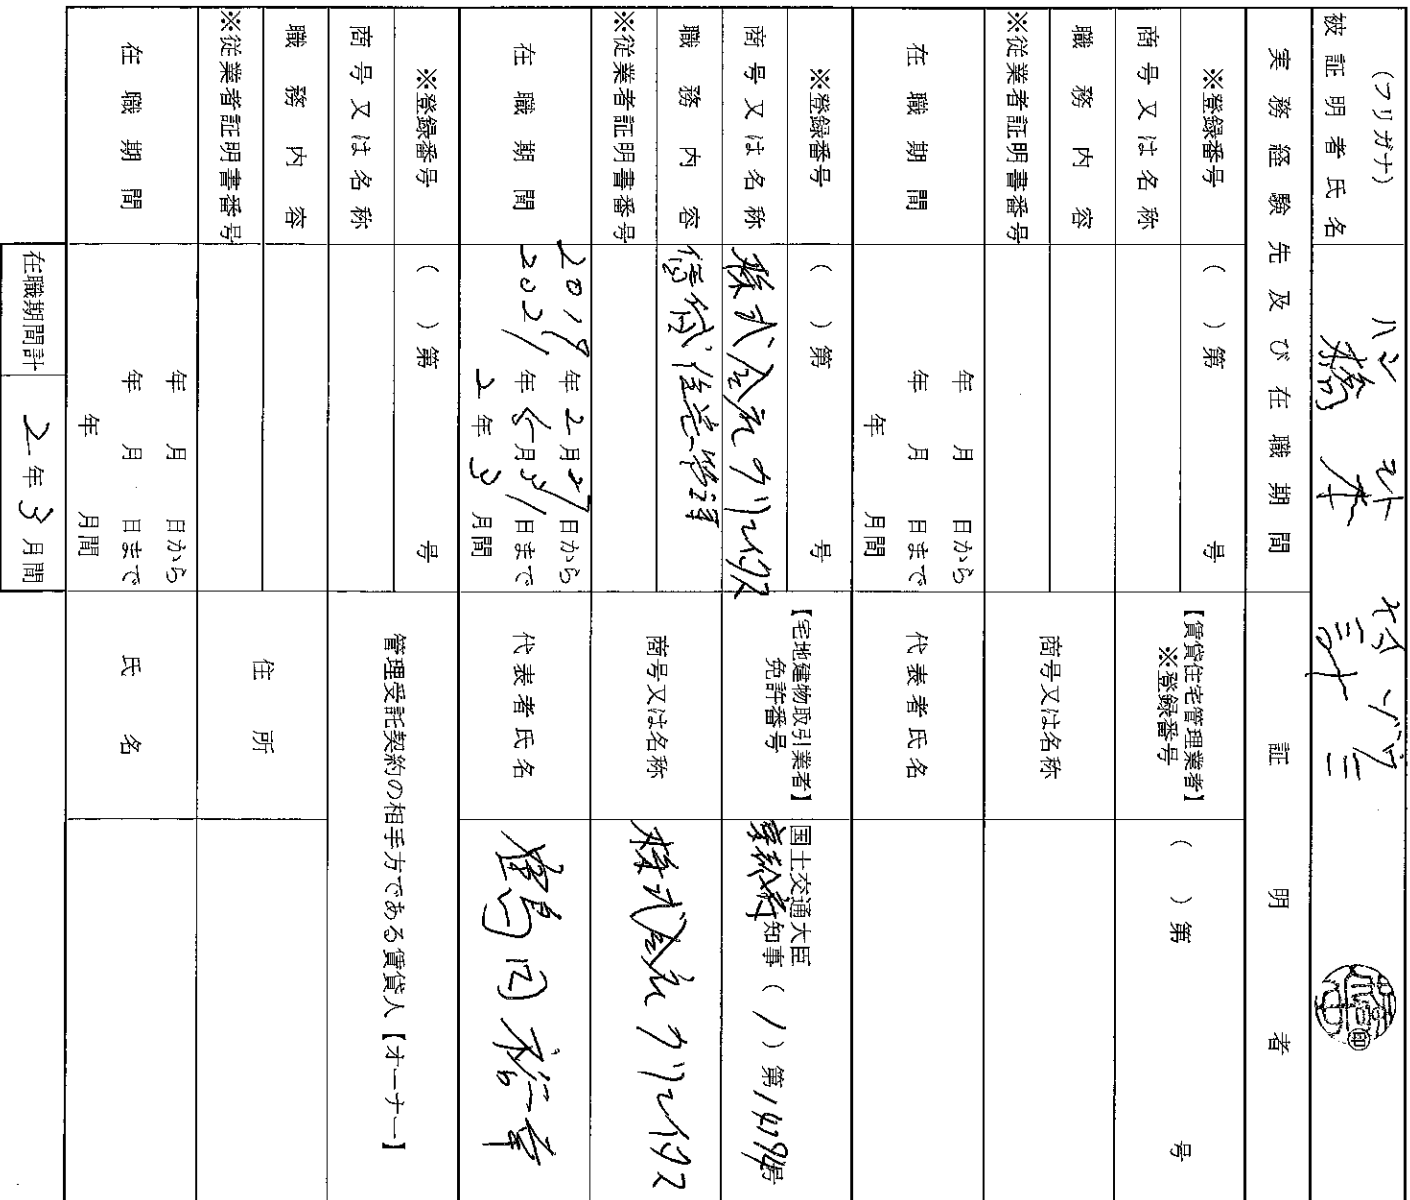 (フリガナ)
被証明者氏名
橋本
実務経験先及び在職期間
証明者
※登録番号
( )第 号
【賃貸住宅管理業者】
※登録番号
( )第 号
商号又は名称
職務内容
商号又は名称
※従業者証明書番号
在職期間
年 月 日から
年 月 日まで
年 月間
代表者氏名
※登録番号
( )第 号
【宅地建物取引業者】
免許番号
国土交通大臣
京都府知事 (1)第14194号
商号又は名称
株式会社クリエイタス
職務内容
賃貸住宅管理
商号又は名称
株式会社クリエイタス
※従業者証明書番号
在職期間
2019年2月27日から
2021年5月31日まで
2年3月間
代表者氏名
※登録番号
( )第 号
管理受託契約の相手方である賃貸人【オーナー】
商号又は名称
職務内容
住所
※従業者証明書番号
在職期間
年 月 日から
年 月 日まで
年 月間
氏名
在職期間計
2年3月間
印